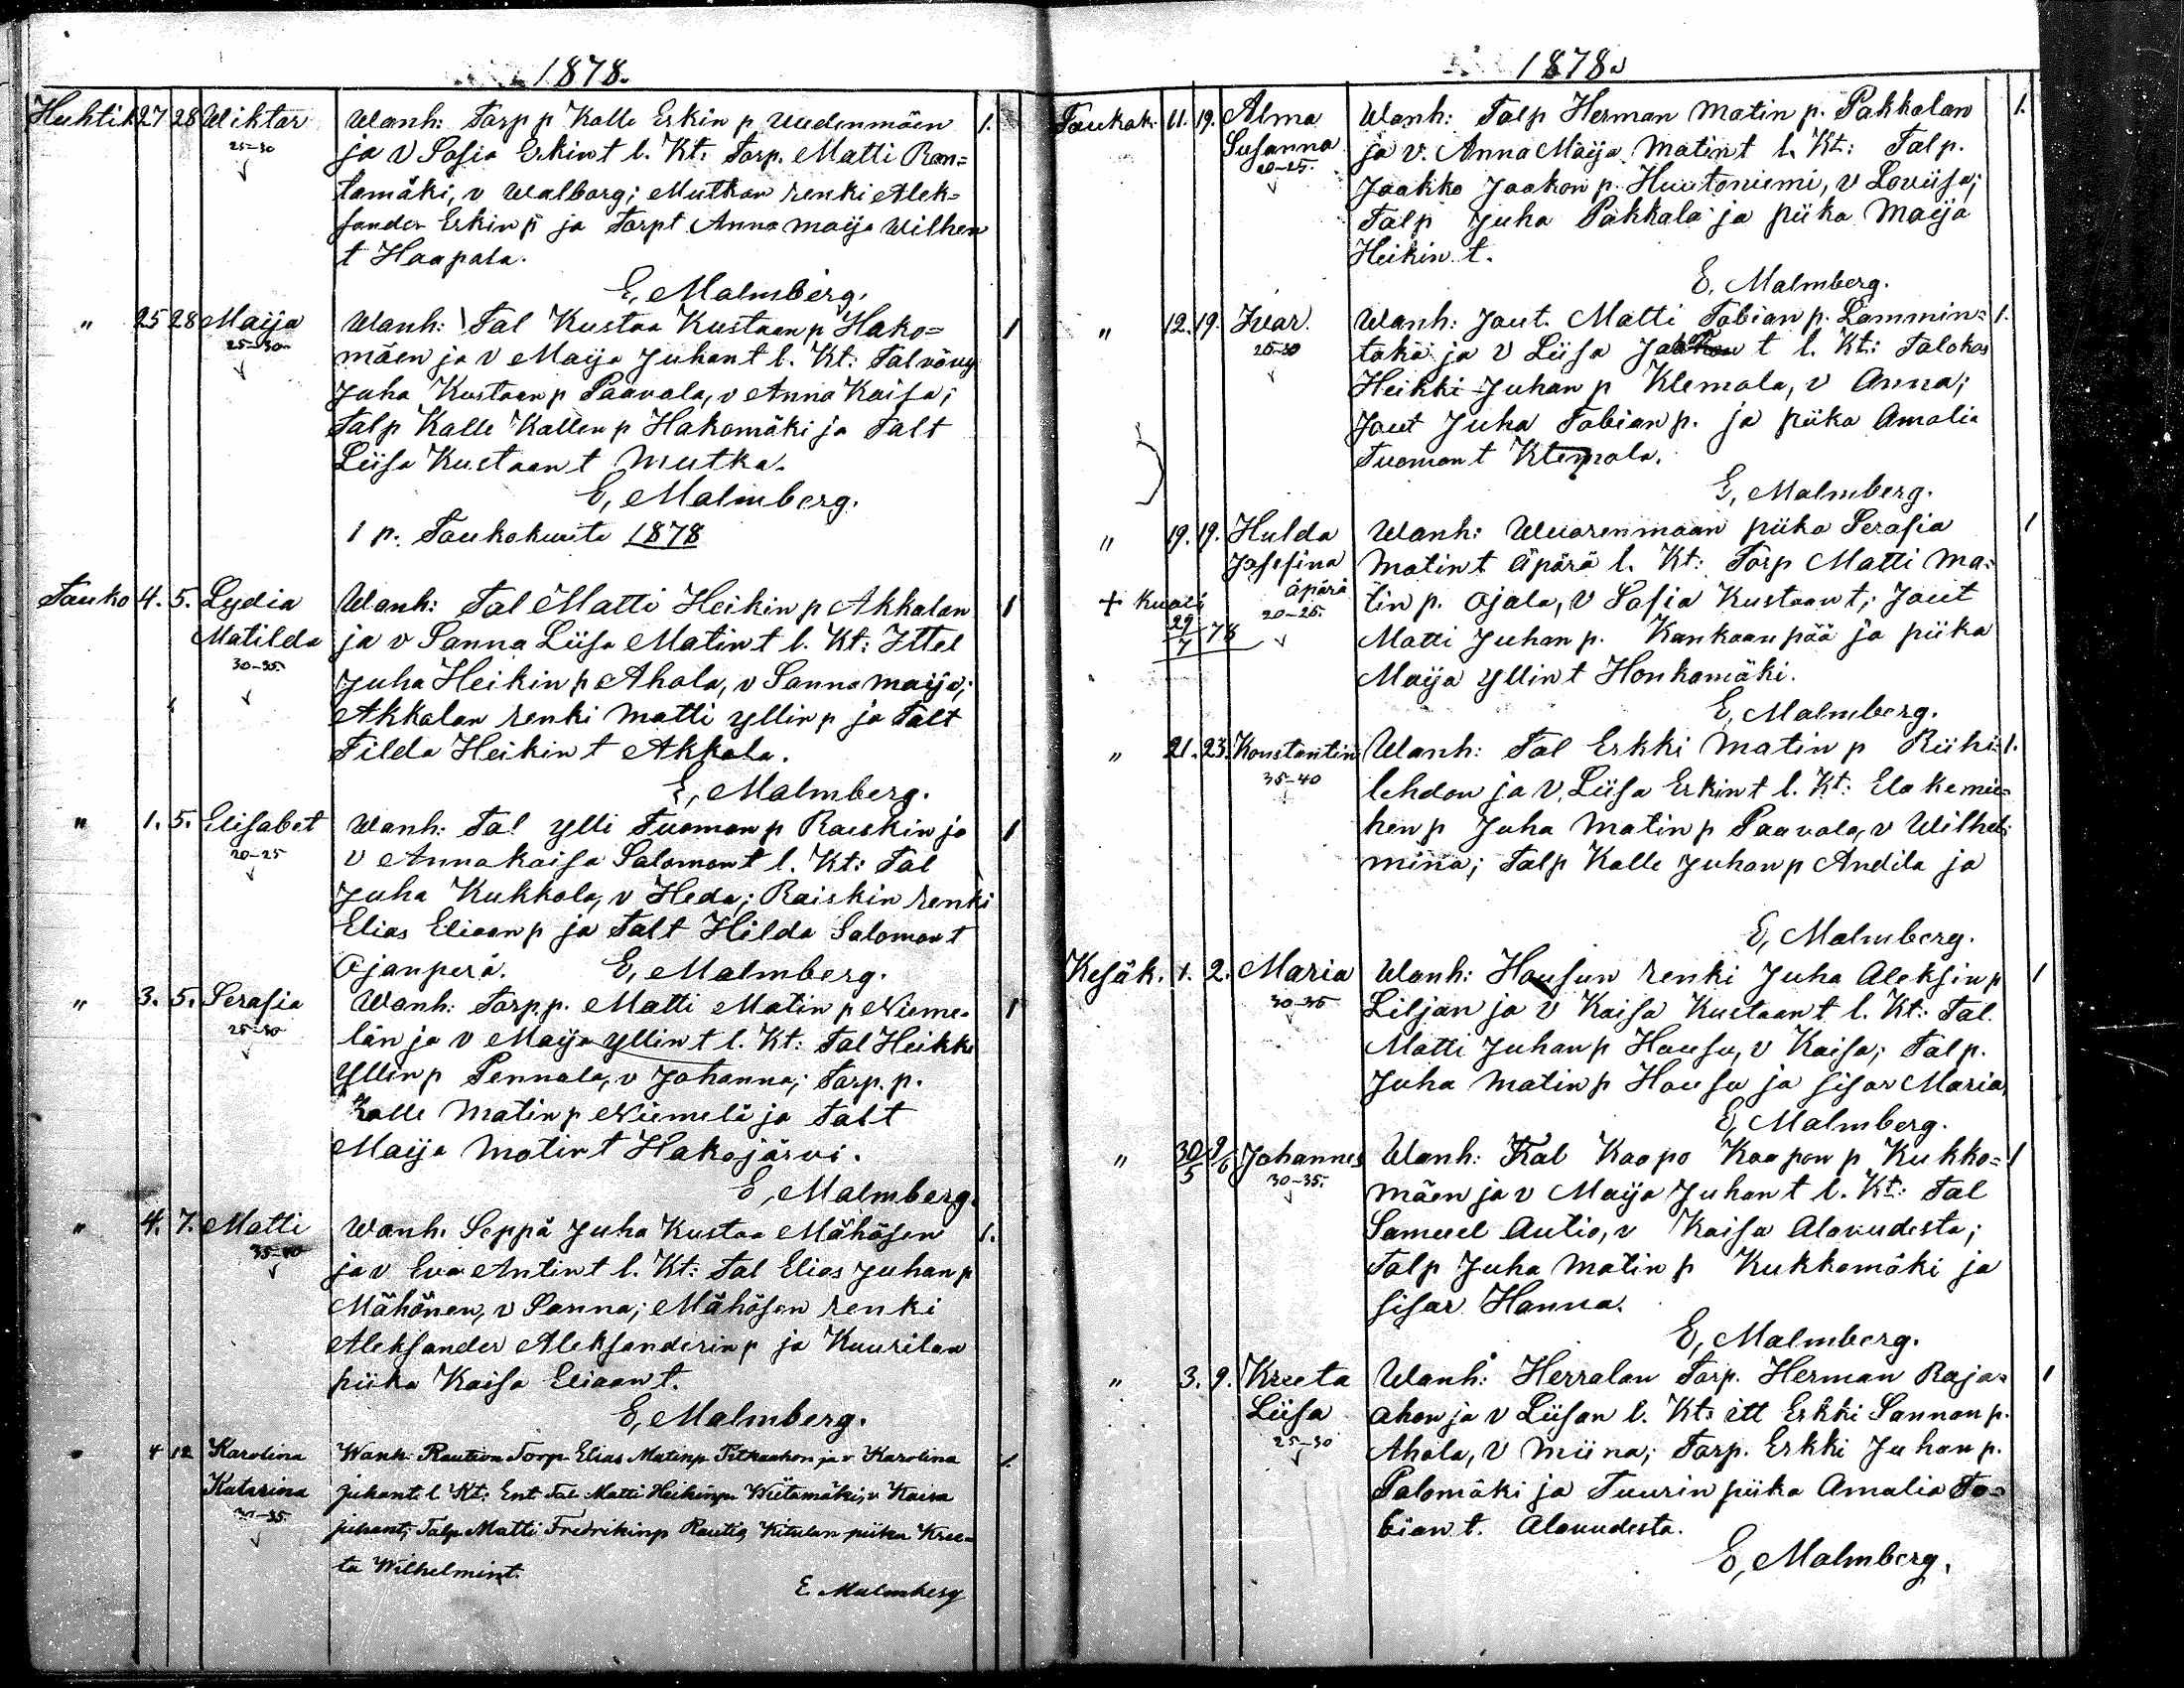 1878.
Huhtik 27 28 Wiktor Wanh: Torp p Kalle Erkin p Uudenmäen 1.
25-30 ja v Sofia Erkin t l. Kt: Torp. Matti Ran=
tamäki, v Walborg; Mutkan renki Alek=
sander Erkin p ja Torpt Anna Maija Wilhen
t Haapala.
E, Malmberg.
" 25 28 Maija Wanh: Tal Kustaa Kustaan p Hako= 1
25-30 mäen ja v Maija Juhan t l. Kt: Talvävy
Juha Kustaan p Paavola, v Anna Kaisa;
Talp Kalle Kallen p Hakomäki ja Talt
Liisa Kustaan t Mutka.
E, Malmberg.
1 p. Toukokuuta 1878
Touko 4. 5. Lydia Wanh: Tal Matti Heikin p Akkalan 1
Matilda ja v Sanna Liisa Matin t l. Kt: Ittel
30-35 Juha Heikin p Ahola, v Sanna Maija;
Akkalan renki Matti Yllin p ja Talt
Tilda Heikin t Akkala.
E, Malmberg.
" 1. 5. Elisabet Wanh: Tal Ylli Tuoman p Raiskin ja 1
20-25 v Anna Kaisa Salomon t l. Kt: Tal
Juha Kukkola, v Heda; Raiskin renki
Elias Eliaan p ja Talt Hilda Salomon t
Ojanperä. E, Malmberg.
" 3. 5. Serafia Wanh: Torp.p. Matti Matin p Nieme= 1
25-30 län ja v Maija Yllin t l. Kt: Tal Heikki
Yllin p Pennala, v Johanna; Torp. p.
Kalle Matin p Niemelä ja Talt
Maija Matin t Hakojärvi.
E, Malmberg.
" 4. 7. Matti Wanh. Seppä Juha Kustaa Mähösen 1.
35-40 ja v Eva Antin t l. Kt: Tal Elias Juhan p
Mähönen, v Sanna; Mähösen renki
Aleksander Aleksanderin p ja Kuurilan
piika Kaisa Eliaan t.
E, Malmberg.
" 4 12 Karolina Wanh: Raution Torp. Elias Matinp Pitkaahon ja v Karolina 1.
Katarina Juhant l Kt: Ent Tal Matti Heikinp Wiitamäki, v Kaisa
30-35 juhant; Talp Matti Fredrikinp Rautio, Kitulan piika Kree=
ta Wilhelmint.
E. Malmberg
1878.
Toukok. 11. 19. Alma Wanh: Talp Herman Matin p. Pakkalan 1.
Susanna ja v. Anna Maija Matin t l. Kt: Talp.
20-25. Jaakko Jaakon p. Huutoniemi, v Loviisa;
Talp Juha Pakkala ja piika Maija
Heikin t.
E. Malmberg.
" 12. 19. Ivar. Wanh: Jout. Matti Tobian p. Lammin= 1.
25-30 takä ja v Liisa t l. Kt: Talokas
Heikki Juhan p Klemola, v Anna;
Jout Juha Tobian p. ja piika Amalia
Tuoman t Klemola.
E, Malmberg.
" 19. 19. Hulda Wanh: Wuorenmaan piika Serafia 1
Josefina Matin t äpärä l. Kt: Torp Matti Ma=
äpärä
+ Kuoli 20-25. tin p. Ojala, v Sofia Kustaan t; Jout
29/7 78 Matti Juhan p. Kankaanpää ja piika
Maija Yllin t Honkamäki.
E, Malmberg.
" 21. 23. Konstantin Wanh: Tal Erkki Matin p Riihi= 1.
35-40 lehdon ja v. Liisa Erkin t l. Kt: Elakemie=
hen p Juha Matin p Paavola, v Wilhel=
mina; Talp Kalle Juhan p Andila ja
E, Malmberg.
Kesäk. 1. 2. Maria Wanh: Housun renki Juha Aleksin p 1
30-35 Liljan ja v Kaisa Kustaan t l. Kt: Tal.
Matti Juhan p Housu, v Kaisa; Talp.
Juha Matin p Housu ja sisar Maria.
E, Malmberg.
" 30/5 9/6 Johannes Wanh: Tal Kaapo Kaapon p Kukko= 1
30-35. mäen ja v Maija Juhan t l. Kt: Tal
Samuel Autio, v Kaisa Alavudesta;
Talp Juha Matin p Kukkomäki ja
sisar Hanna.
E, Malmberg.
" 3. 9. Kreeta Wanh: Herralan Torp. Herman Raja= 1
Liisa ahon ja v Liisan l. Kt: itt Erkki Sannan p.
25-30 Ahola, v Miina; Torp. Erkki Juhan p.
Palomäki ja Tuurin piika Amalia To=
bian t. Alavudesta.
E, Malmberg.